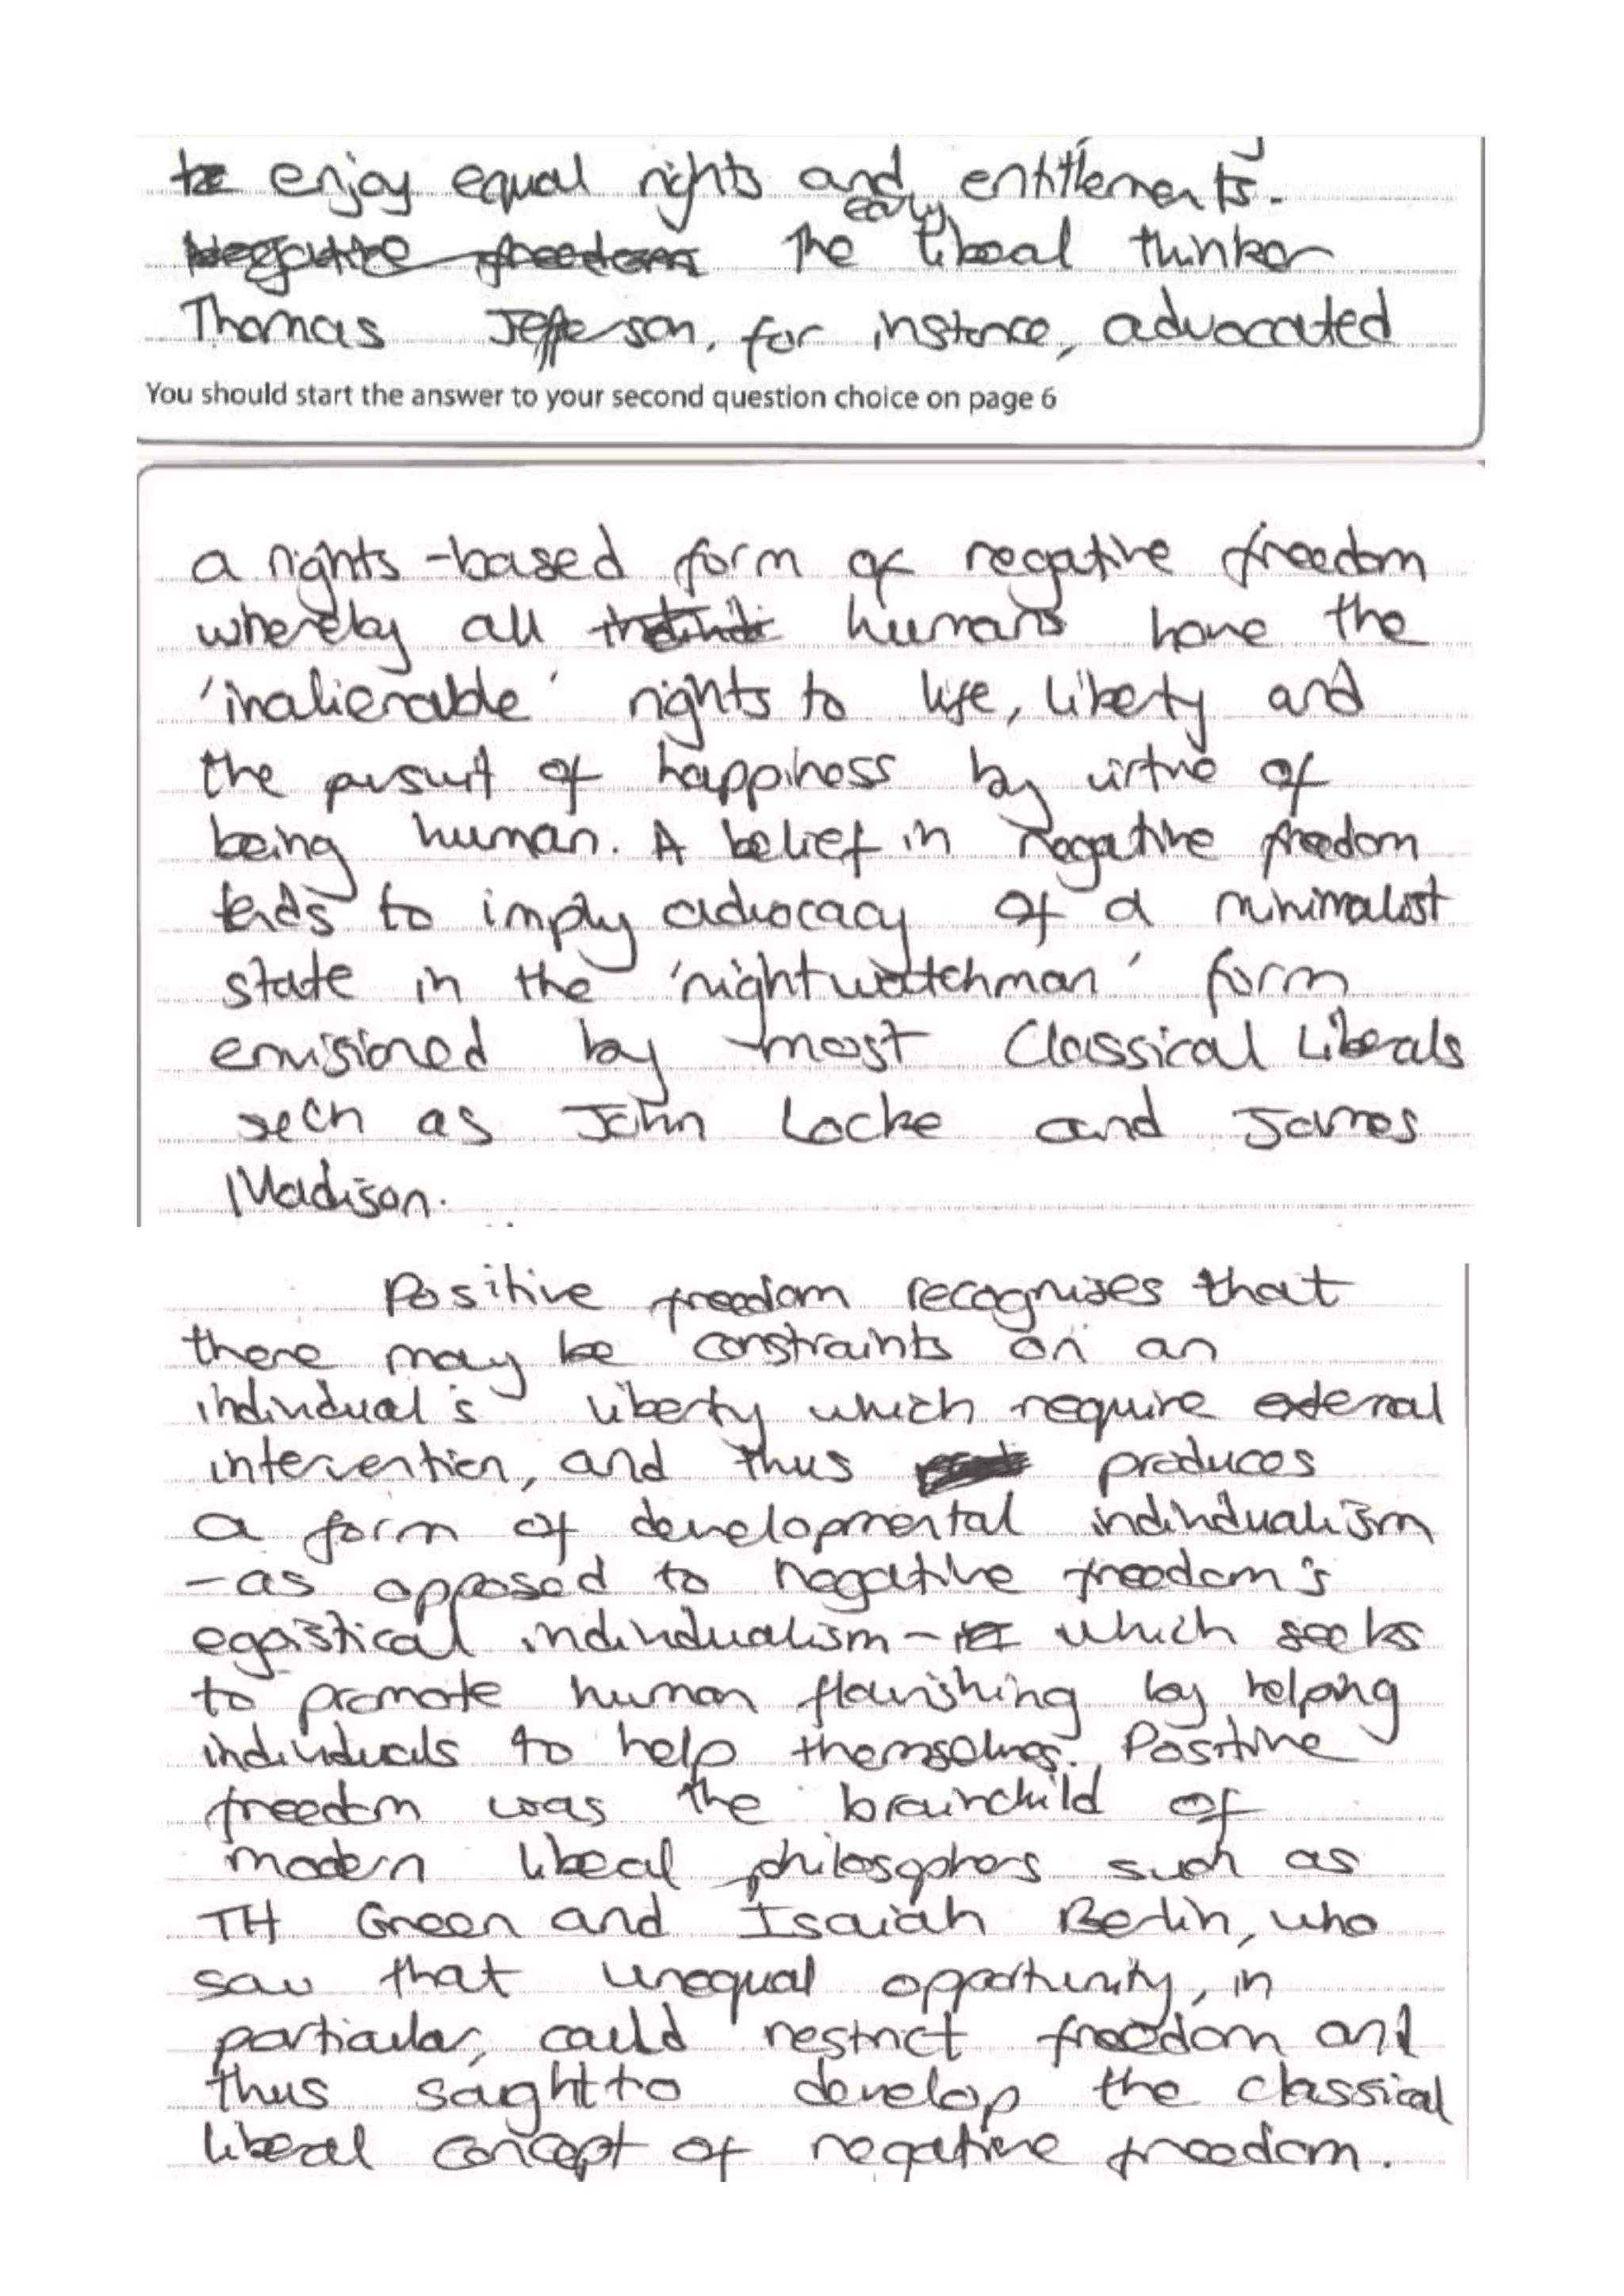 to enjoy equal rights and entitlements.
Negative freedom The early liberal thinker
Thomas Jefferson, for instance, advocated
You should start the answer to your second question choice on page 6
a rights-based form of negative freedom
whereby all humans have the
'inalienable' rights to life, liberty and
the pursuit of happiness by virtue of
being human. A belief in negative freedom
tends to imply advocacy of a minimalist
state in the 'nightwatchman' form
envisioned by most Classical Liberals
such as John Locke and James
Madison.
Positive freedom recognises that
there may be constraints on an
individual's liberty which require external
intervention, and thus produces
a form of developmental individualism
- as opposed to negative freedom's
egoistical individualism - which seeks
to promote human flourishing by helping
individuals to help themselves. Positive
freedom was the brainchild of
modern liberal philosophers such as
TH Green and Isaiah Berlin, who
saw that unequal opportunity, in
particular, could restrict freedom and
thus sought to develop the classical
liberal concept of negative freedom.